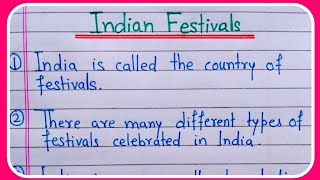 Indian Festivals
① India is called the country of
festivals.
② There are many different types of
festivals celebrated in India.